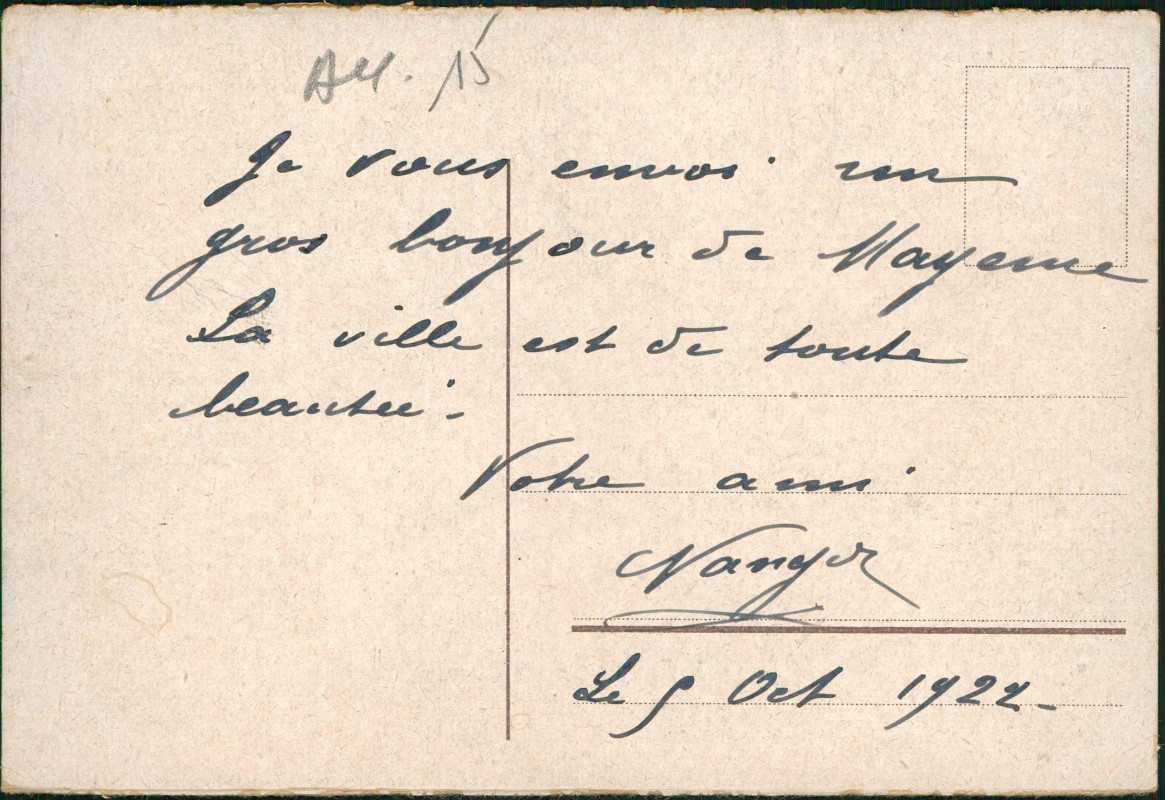 All. 15
Je vous envoi un
gros bonjour de Mayence
La ville est de toute
beautée.
Votre ami
Le 5 Oct 1922